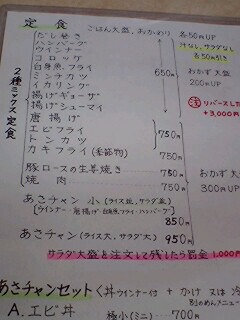 定食
ごはん大盛、おかわり 各50円UP
汁なし、サラダなし
各50円引き
だし巻き
ハンバーグ
ウインナー
コロッケ
白身魚フライ
ミンチカツ
イカリング
揚げギョーザ
揚げシューマイ
650円
おかず大盛
200円UP
2種ミックス定食
リバースした
+3,000円
唐揚げ
エビフライ
トンカツ
750円
カキフライ(季節物) 750円
豚ロースの生姜焼き 750円
焼肉 750円
おかず大
300円UP
あさチャン 小(ライス並、サラダ並)
(ウインナー・唐揚げ・白身魚フライ・ハンバーグ)
850円
あさチャン(ライス大、サラダ大) 950円
サラダ大盛と注文して残したら罰金 1,000円
あさチャンセット〈丼 ウインナー付 + かけ 又は 冷
別のめんメニュー
A.エビ丼
極小(ミニ) 700円